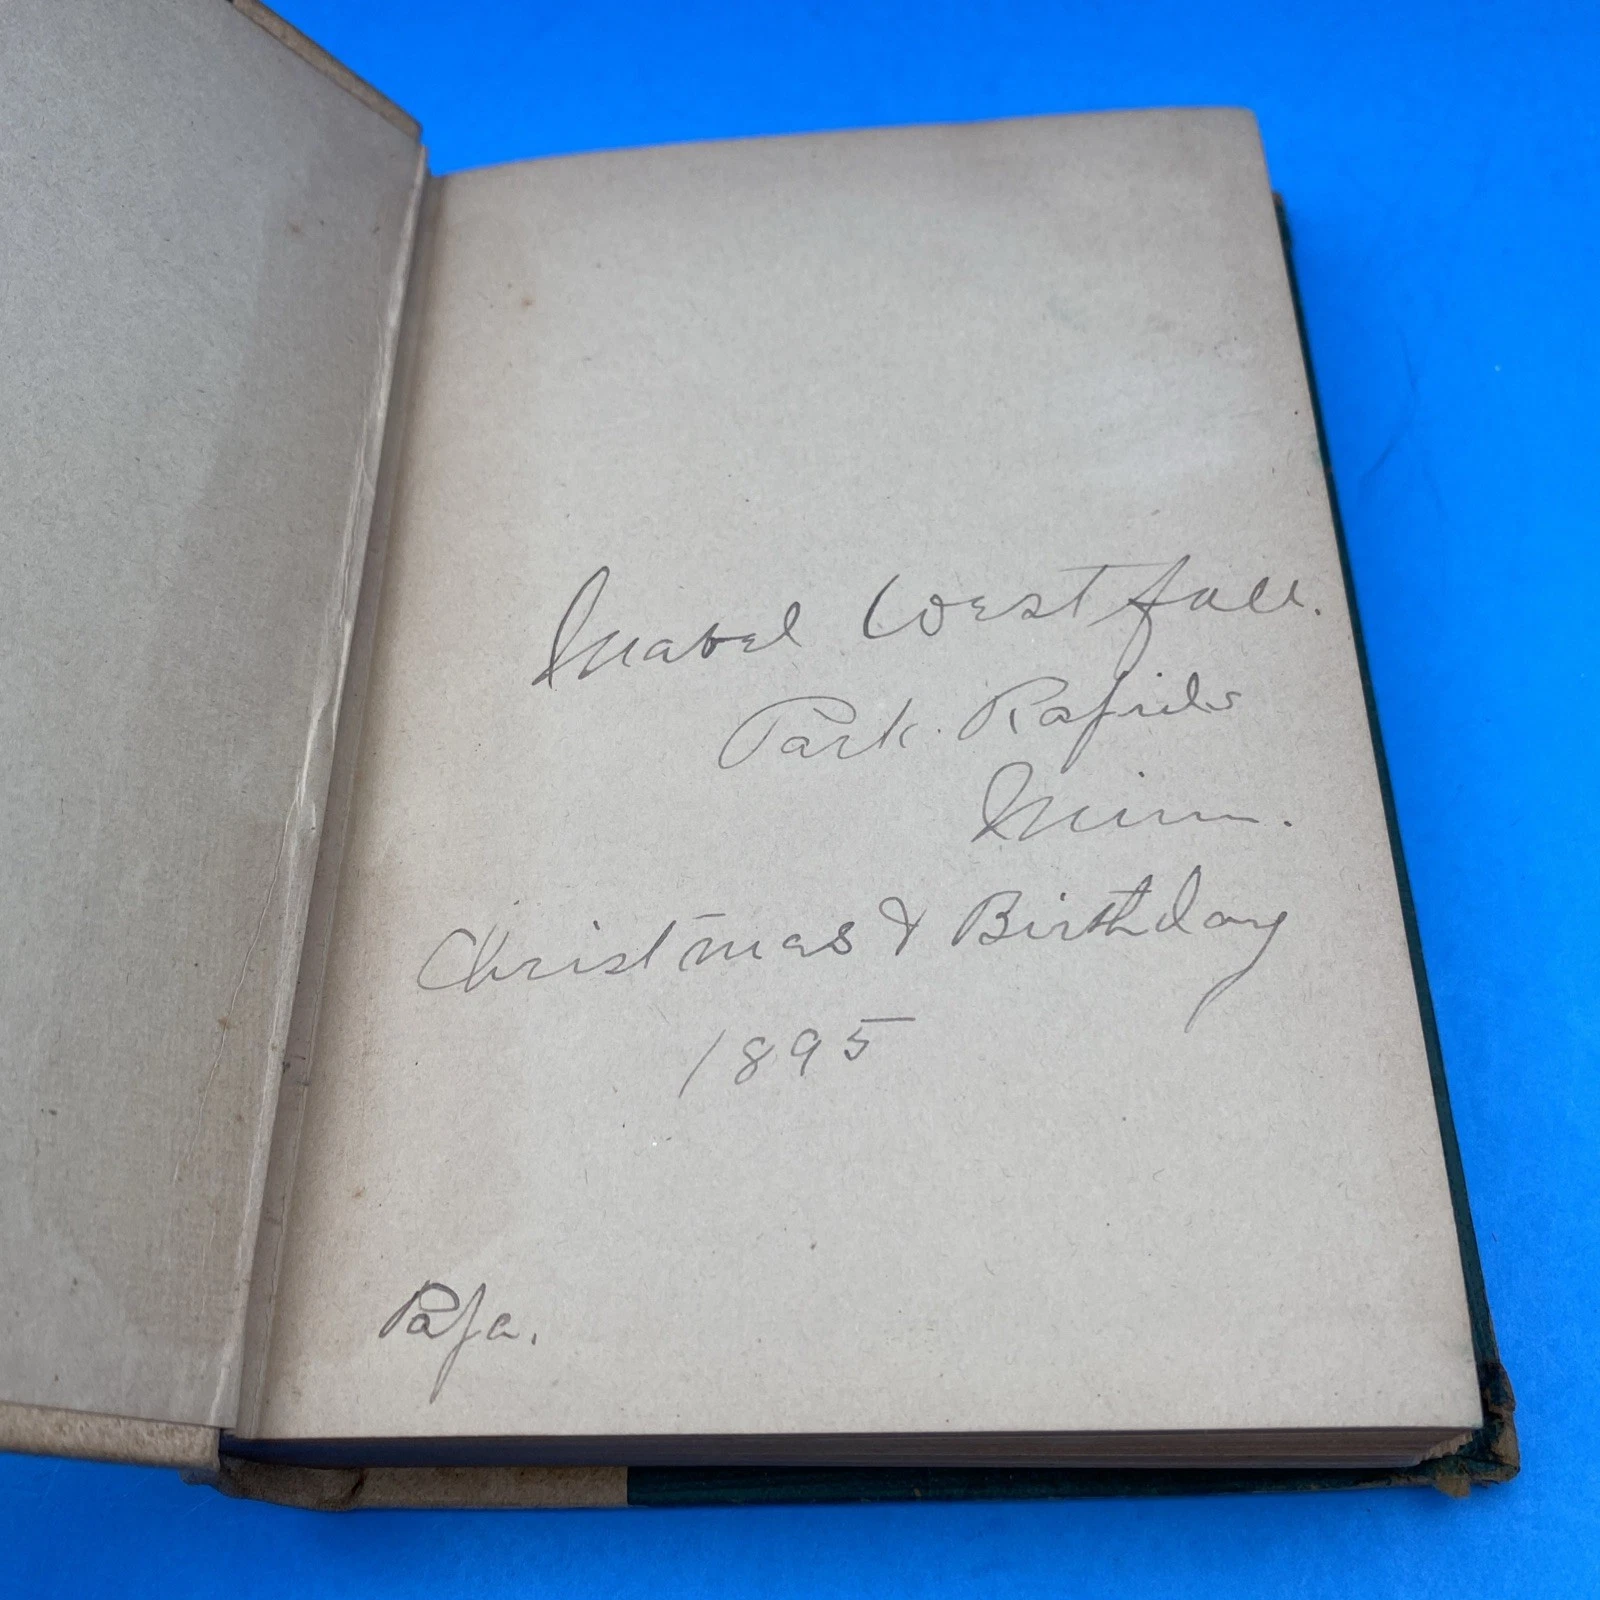 Mabel Westfall.
Park Rapids
Minn.
Christmas & Birthday
1895
Papa.